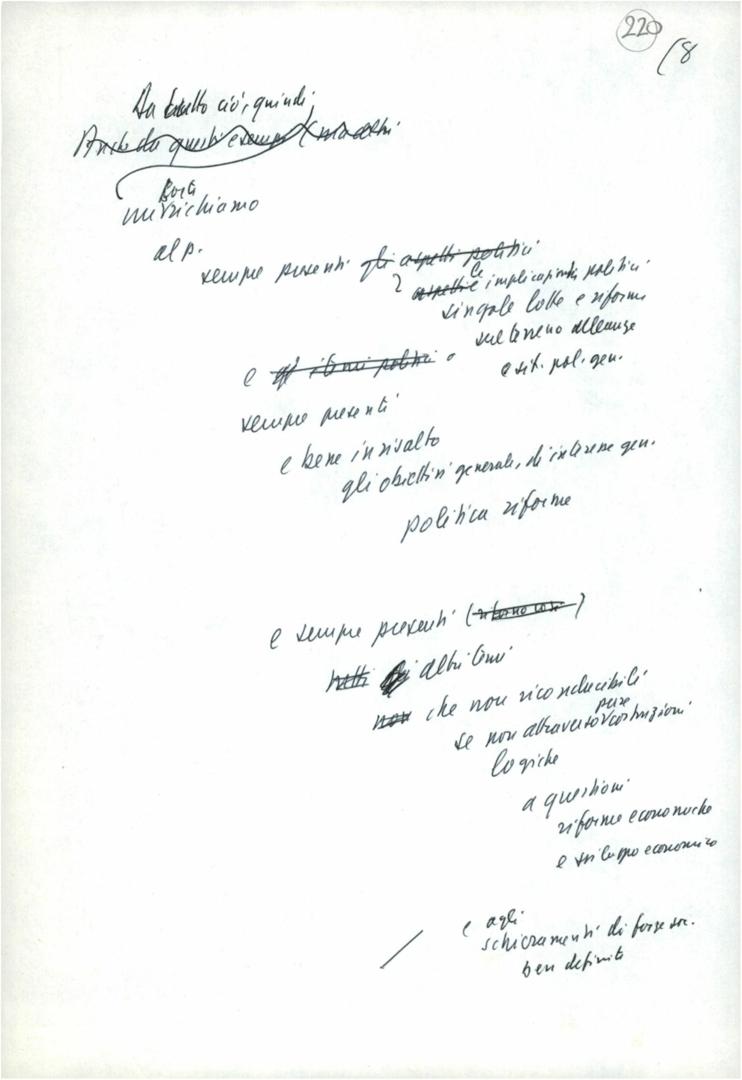 220
/8
Da tutto ciò, quindi,
Anche da questi esempi (ma altri
forti
un richiamo
al p.
sempre presenti gli aspetti politici
aspetti e le implicazioni politici
singole lotte e riforme
sul terreno alleanze
e sit. pol. gen.
e politici
sempre presenti
e bene in risalto
gli obiettivi generali, di interesse gen.
politica riforme
e sempre presenti (ritorno così)
tutti altri temi
non che non riconducibili
pure
se non attraverso costruzioni
logiche
a questioni
riforme economiche
e sviluppo economico
e agli
schieramenti di forze soc.
ben definite